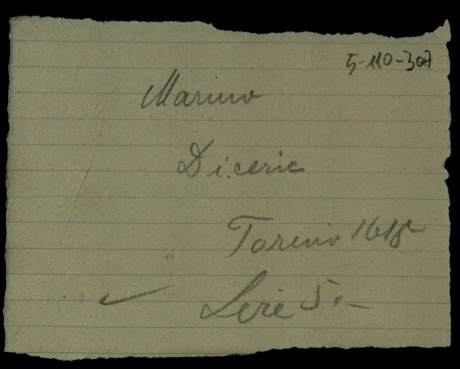 5-110-307
Marino
Dicerie
Torino 1618
Lire 5.-